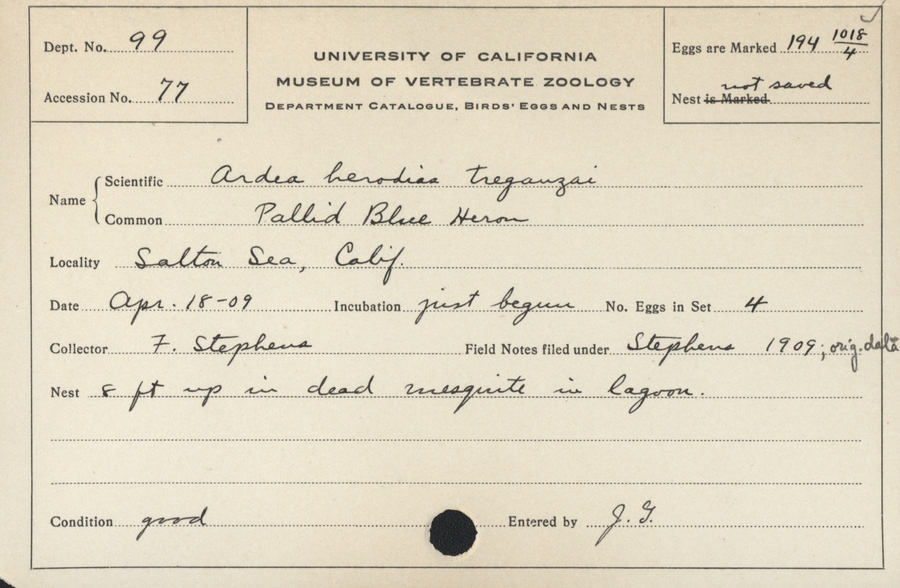 Dept. No. 99
Accession No. 77
UNIVERSITY OF CALIFORNIA
MUSEUM OF VERTEBRATE ZOOLOGY
DEPARTMENT CATALOGUE, BIRDS' EGGS AND NESTS
Eggs are Marked 194 1018/4
not saved
Nest is Marked
Name { Scientific Ardea herodias treganzai
Common Pallid Blue Heron
Locality Salton Sea, Calif.
Date Apr. 18-09 Incubation just begun No. Eggs in Set 4
Collector F. Stephens Field Notes filed under Stephens 1909; orig. data
Nest 8 ft up in dead mesquite in lagoon.
Condition good Entered by J. G.